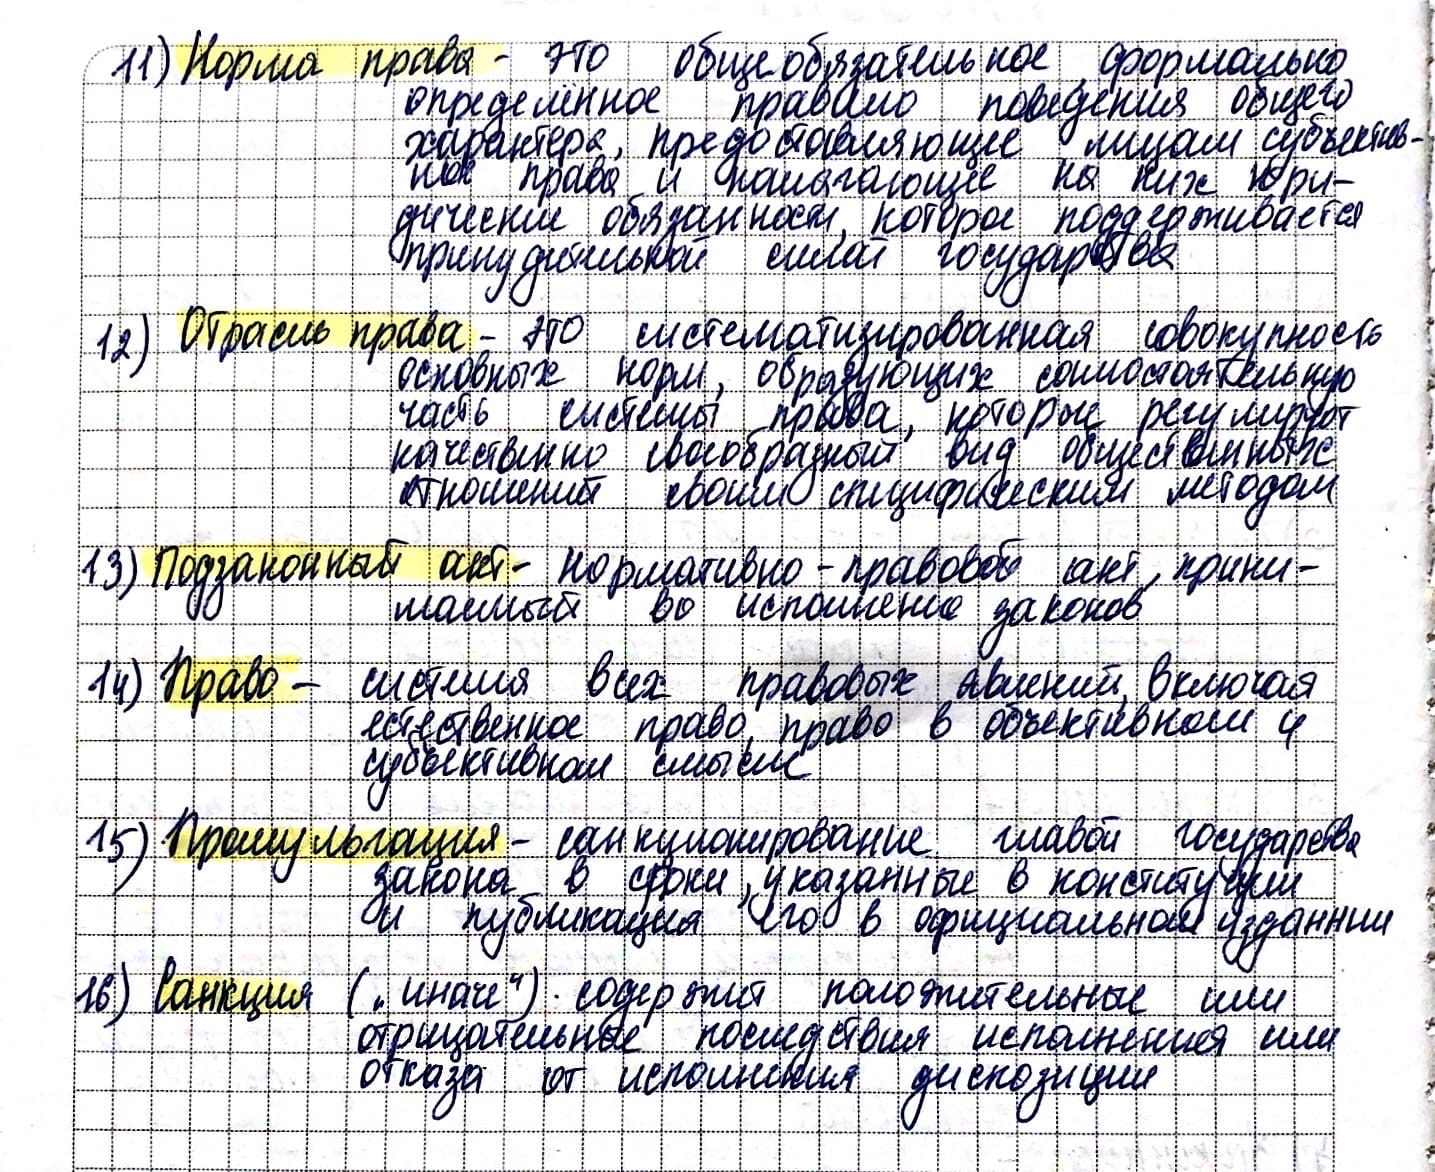 11) Норма права - это общеобязательное, формально
определённое правило поведения общего
характера, предоставляющие лицам субъектив-
ное права и налагающие на них юри-
дические обязанности, которое поддерживается
принудительной силой государства
12) Отрасль права - это систематизированная совокупность
основных норм, образующих самостоятельную
часть системы права, которые регулируют
качественно своеобразный вид общественных
отношений своим специфическим методом
13) Подзаконный акт - нормативно-правовой акт, прини-
маемый во исполнение законов
14) Право - система всех правовых явлений, включая
естественное право, право в объективном и
субъективном смысле
15) Промульгация - санкционирование главой государства
закона в сроки, указанные в конституции
и публикация его в официальном издании
16) Санкция („иначе“) содержит положительные или
отрицательные последствия исполнения или
отказа от исполнения диспозиции